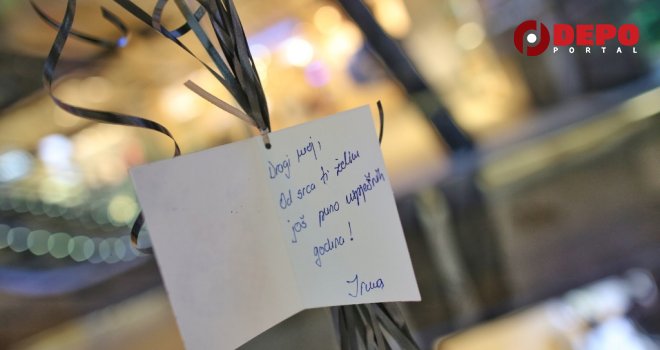 DEPO
PORTAL
Dragi moj,
Od srca ti želim
još puno uspješnih
godina!
Irma